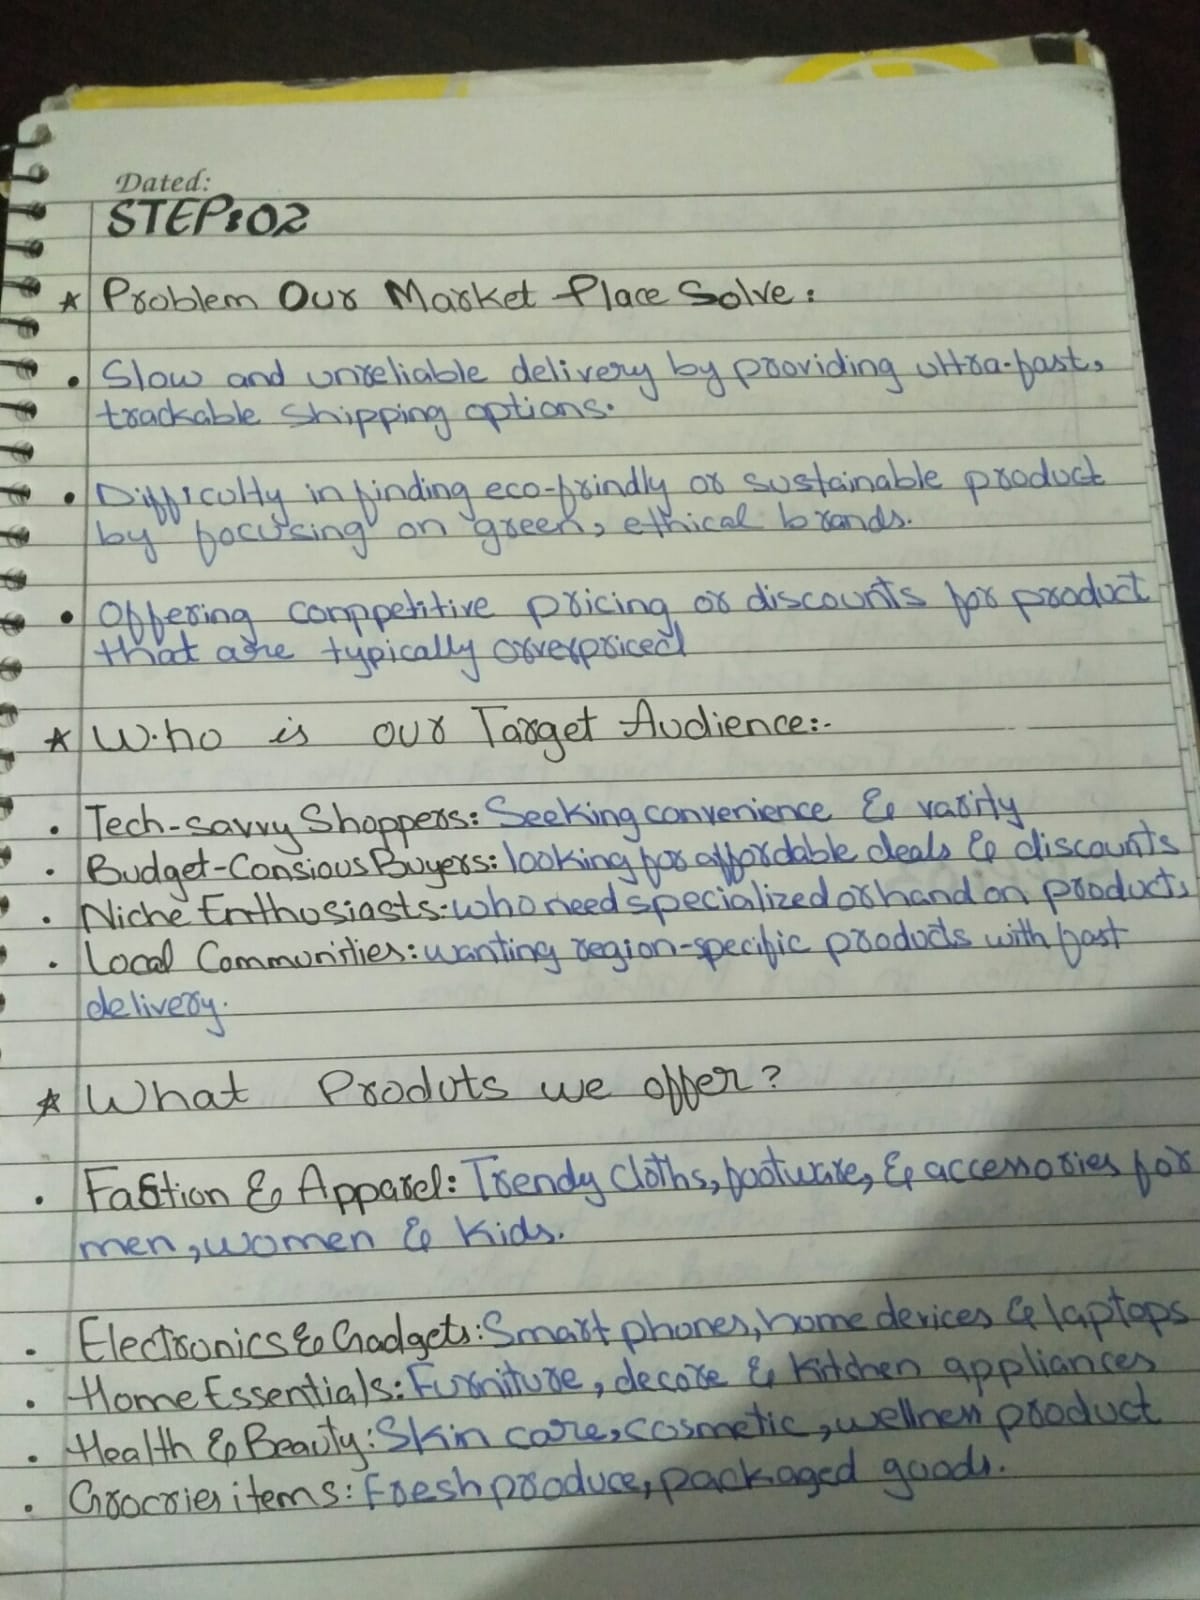 Dated:
STEP:02
* Problem Our Market Place Solve:
• Slow and unreliable delivery by providing ultra-fast,
trackable shipping options.
• Difficulty in finding eco-frindly or sustainable product
by focusing on green, ethical brands.
• Offering conppetitive pricing or discounts for product
that are typically orverpriced
* Who is our Target Audience:-
• Tech-savvy Shoppers: Seeking convenience & varity
• Budget-Consious Buyers: looking for affordable deals & discounts
• Niche Enthusiasts:-who need specialized or hand on products
• Local Communities: wanting region-specific products with fast
delivery.
* What Produts we offer?
• Fastion & Apparel: Trendy Cloths, footware, & accessories for
men, women & kids.
• Electronics & Gadgets: Smart phones, home devices & laptops
• Home Essentials: Furniture, decore & kitchen appliances
• Health & Beauty: Skin care, cosmetic, wellness product
• Grocries items: Fresh produce, packaged goods.